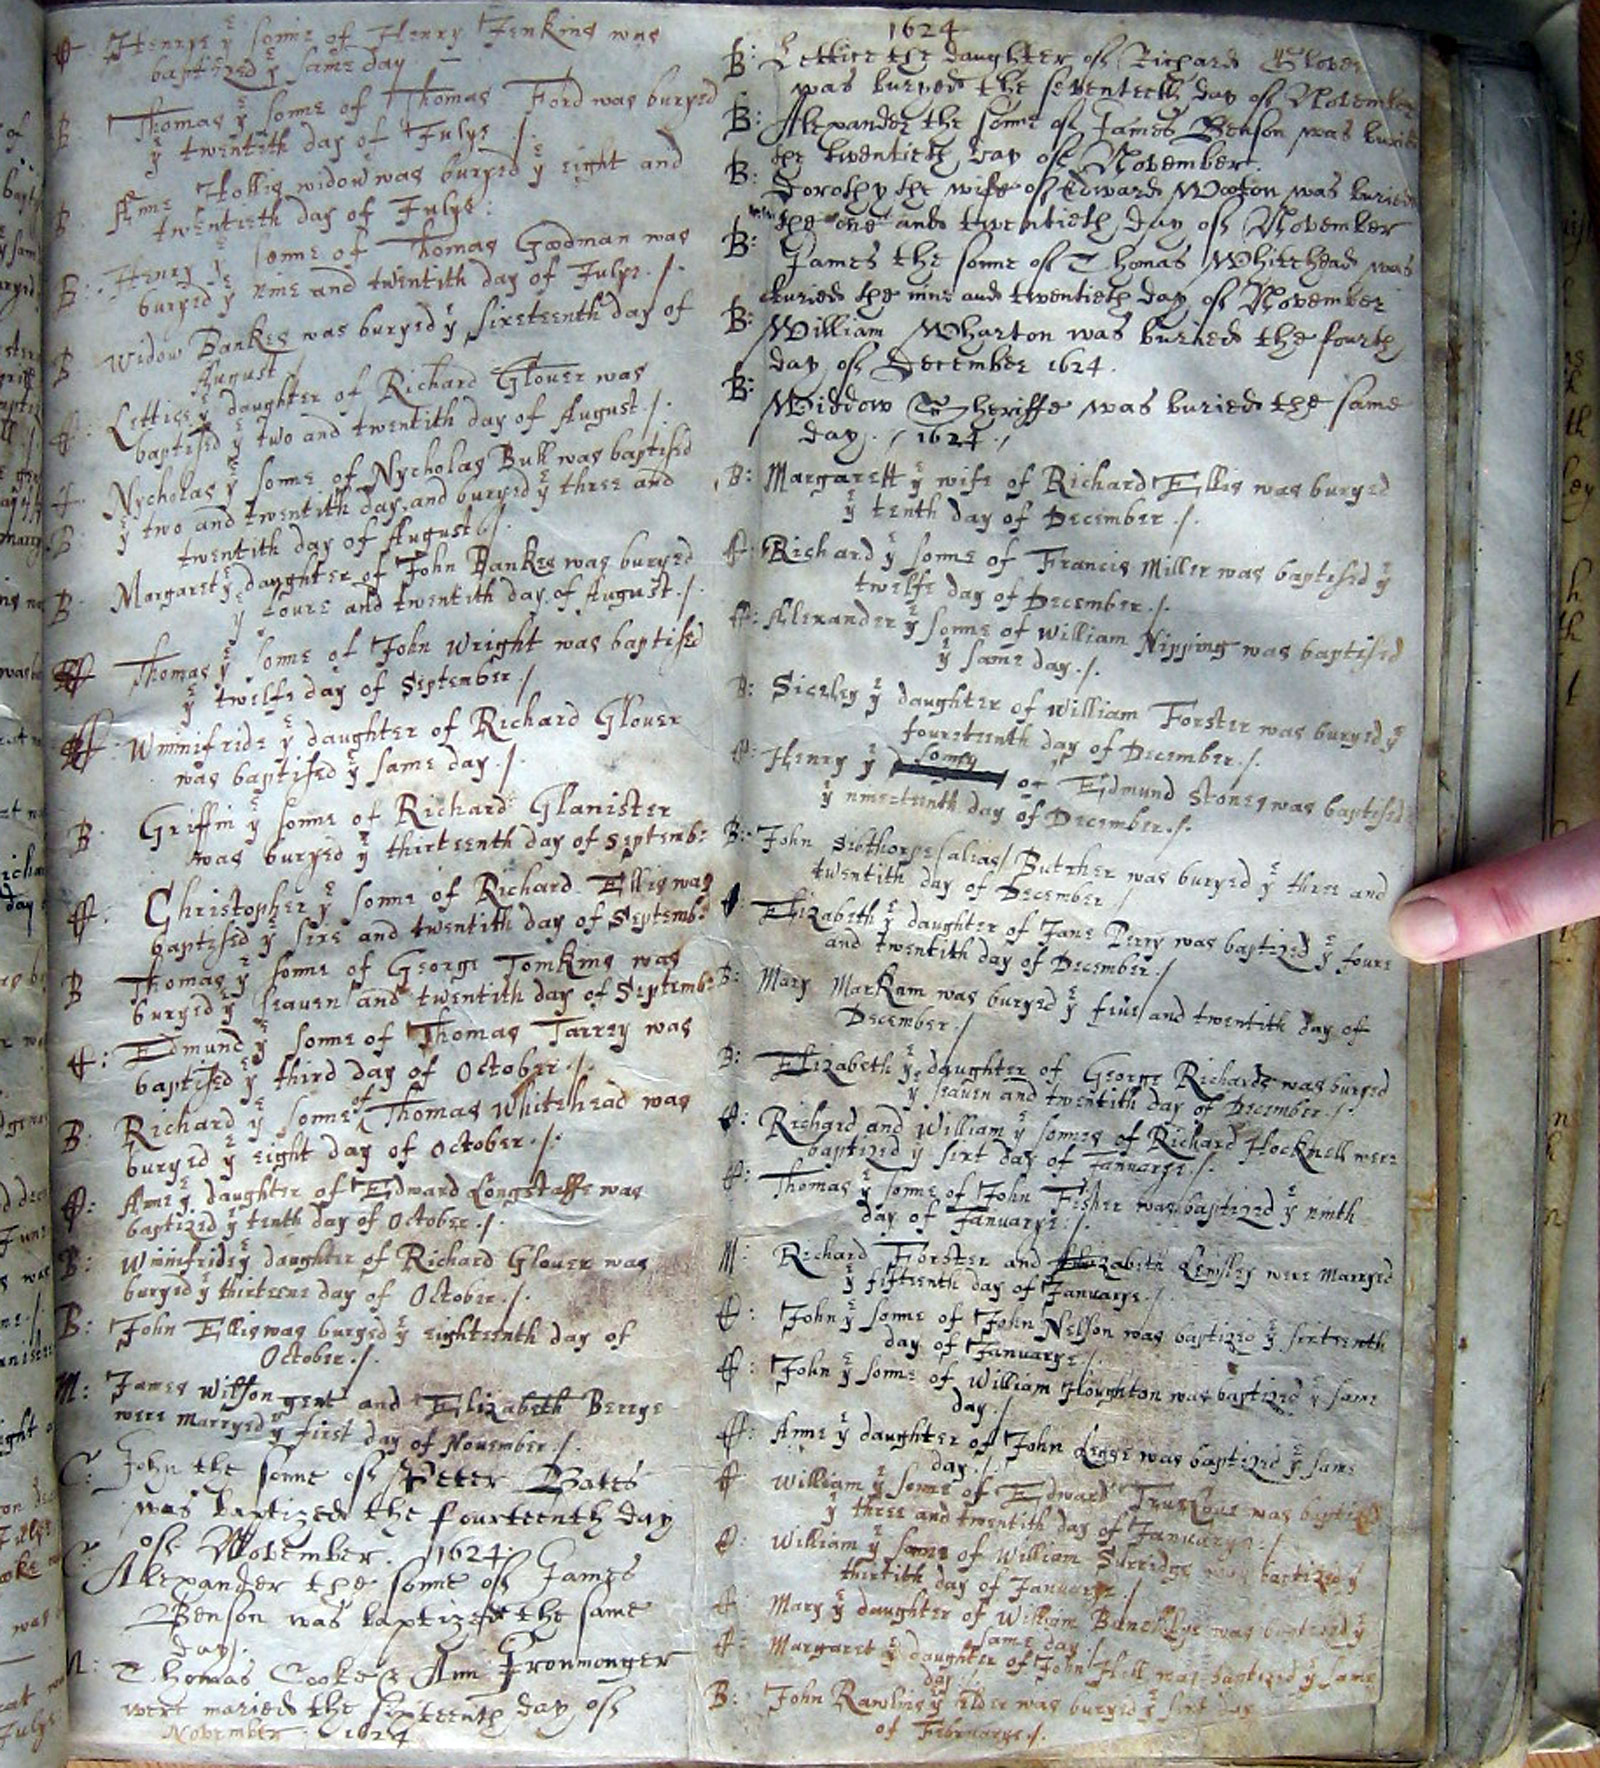 Henrye yᵉ sonne of Henry Jenkins was
baptized yᵉ same day
B: Thomas yᵉ sonne of Thomas Ford was buryed
yᵉ twentith day of Julye ./.
B Anne Hollis widow was buryed yᵉ eight and
twentieth day of Julye:
B: Henry yᵉ sonne of Thomas Goodman was
buryed yᵉ nine and twentith day of Julye ./.
B widow Bankes was buryed yᵉ sixteenth day of
August /
Lettice yᵉ daughter of Richard Glover was
baptised yᵉ two and twentith day of August ./.
Nycholas yᵉ sonne of Nycholas Bull was baptised
B: yᵉ two and twentith day, and buryed yᵉ three and
twentith day of August ./.
B Margaret yᵉ daughter of John Bankes was buryed
yᵉ foure and twentith day of August ./.
Thomas yᵉ sonne of John Wright was baptised
yᵉ twelfe day of September ./
Winnifride yᵉ daughter of Richard Glover
was baptised yᵉ same day ./.
B Griffin yᵉ sonne of Richard Glanister
was buryed yᵉ thirteenth day of Septemb:
Christopher yᵉ sonne of Richard Ellis was
baptised yᵉ sixe and twentith day of Septemb:
B Thomas yᵉ sonne of George Tomkins was
buryed yᵉ seaven and twentith day of Septemb:
Edmund yᵉ sonne of Thomas Tarrey was
baptised yᵉ third day of October ./.
B: Richard yᵉ sonne of Thomas Whitehead was
buryed yᵉ eight day of October ./.
Anne yᵉ daughter of Edward Longstaffe was
baptized yᵉ tenth day of October ./.
B: Winnifride yᵉ daughter of Richard Glover was
buryed yᵉ thirteene day of October ./.
B: John Ellis was buryed yᵉ eighteenth day of
October ./.
M: James Wilson gent and Elizabeth Berrye
were marryed yᵉ first day of November ./.
C: John the sonne of Peter Bates
was baptized the fourteenth day
of November. 1624:
C: Alexander the sonne of James
Benson was baptized the same
day.
M: Thomas Cooke & Ann Ironmonger
were maried the sixteenth day of
November 1624
1624
B: Lettice the daughter of Richard Glover
was buryed the seventeeth day of November
B: Alexander the sonne of James Benson was buried
the twentieth day of November.
B: Dorothy the wife of Edward Wooton was buried
the one and twentieth day of November
B: James the sonne of Thomas Whitehead was
buried the nine and twentieth day of November
B: William Wharton was buried the fourth
day of December 1624.
B: Widdow Sheriffe was buried the same
day. / 1624 ./
B: Margarett yᵉ wife of Richard Ellis was buryed
yᵉ tenth day of December ./.
Richard yᵉ sonne of Francis Miller was baptised yᵉ
twelfe day of December ./.
Alexander yᵉ sonne of William Nipping was baptised
yᵉ same day ./.
B: Siceley yᵉ daughter of William Forster was buryed yᵉ
foureteenth day of December ./.
Henry yᵉ sonne of Edmund Stones was baptised
yᵉ nineteenth day of December ./.
B: John Sibthorpe (alias) Butcher was buryed yᵉ three and
twentith day of December /
Elizabeth yᵉ daughter of Jane Perry was baptized yᵉ foure
and twentith day of December ./
B: Mary Markam was buryed yᵉ five and twentith day of
December ./
B: Elizabeth yᵉ daughter of George Richards was buryed
yᵉ seaven and twentith day of December ./.
Richard and William yᵉ sonnes of Richard Hocknell were
baptized yᵉ sixt day of Januarye ./.
Thomas yᵉ sonne of John Fisher was baptized yᵉ ninth
day of Januarye: /.
M: Richard Forster and Elizabeth were marryed
yᵉ fifteenth day of Januarye ./
John yᵉ sonne of John Nelson was baptized yᵉ sixteenth
day of Januarye /.
John yᵉ sonne of William Houghton was baptized yᵉ same
day ./
Anne yᵉ daughter of John Legge was baptized yᵉ same
day ./.
William yᵉ sonne of Edward Truelove was baptized
yᵉ three and twentith day of Januarye: /
William yᵉ sonne of William Surridge was baptized yᵉ
thirtith day of Januarye ./
Mary yᵉ daughter of William was baptized yᵉ
same day ./
Margaret yᵉ daughter of John Hill was baptized yᵉ same
day /
B: John Rawlins yᵉ elder was buryed yᵉ sixt day
of Februarye ./.